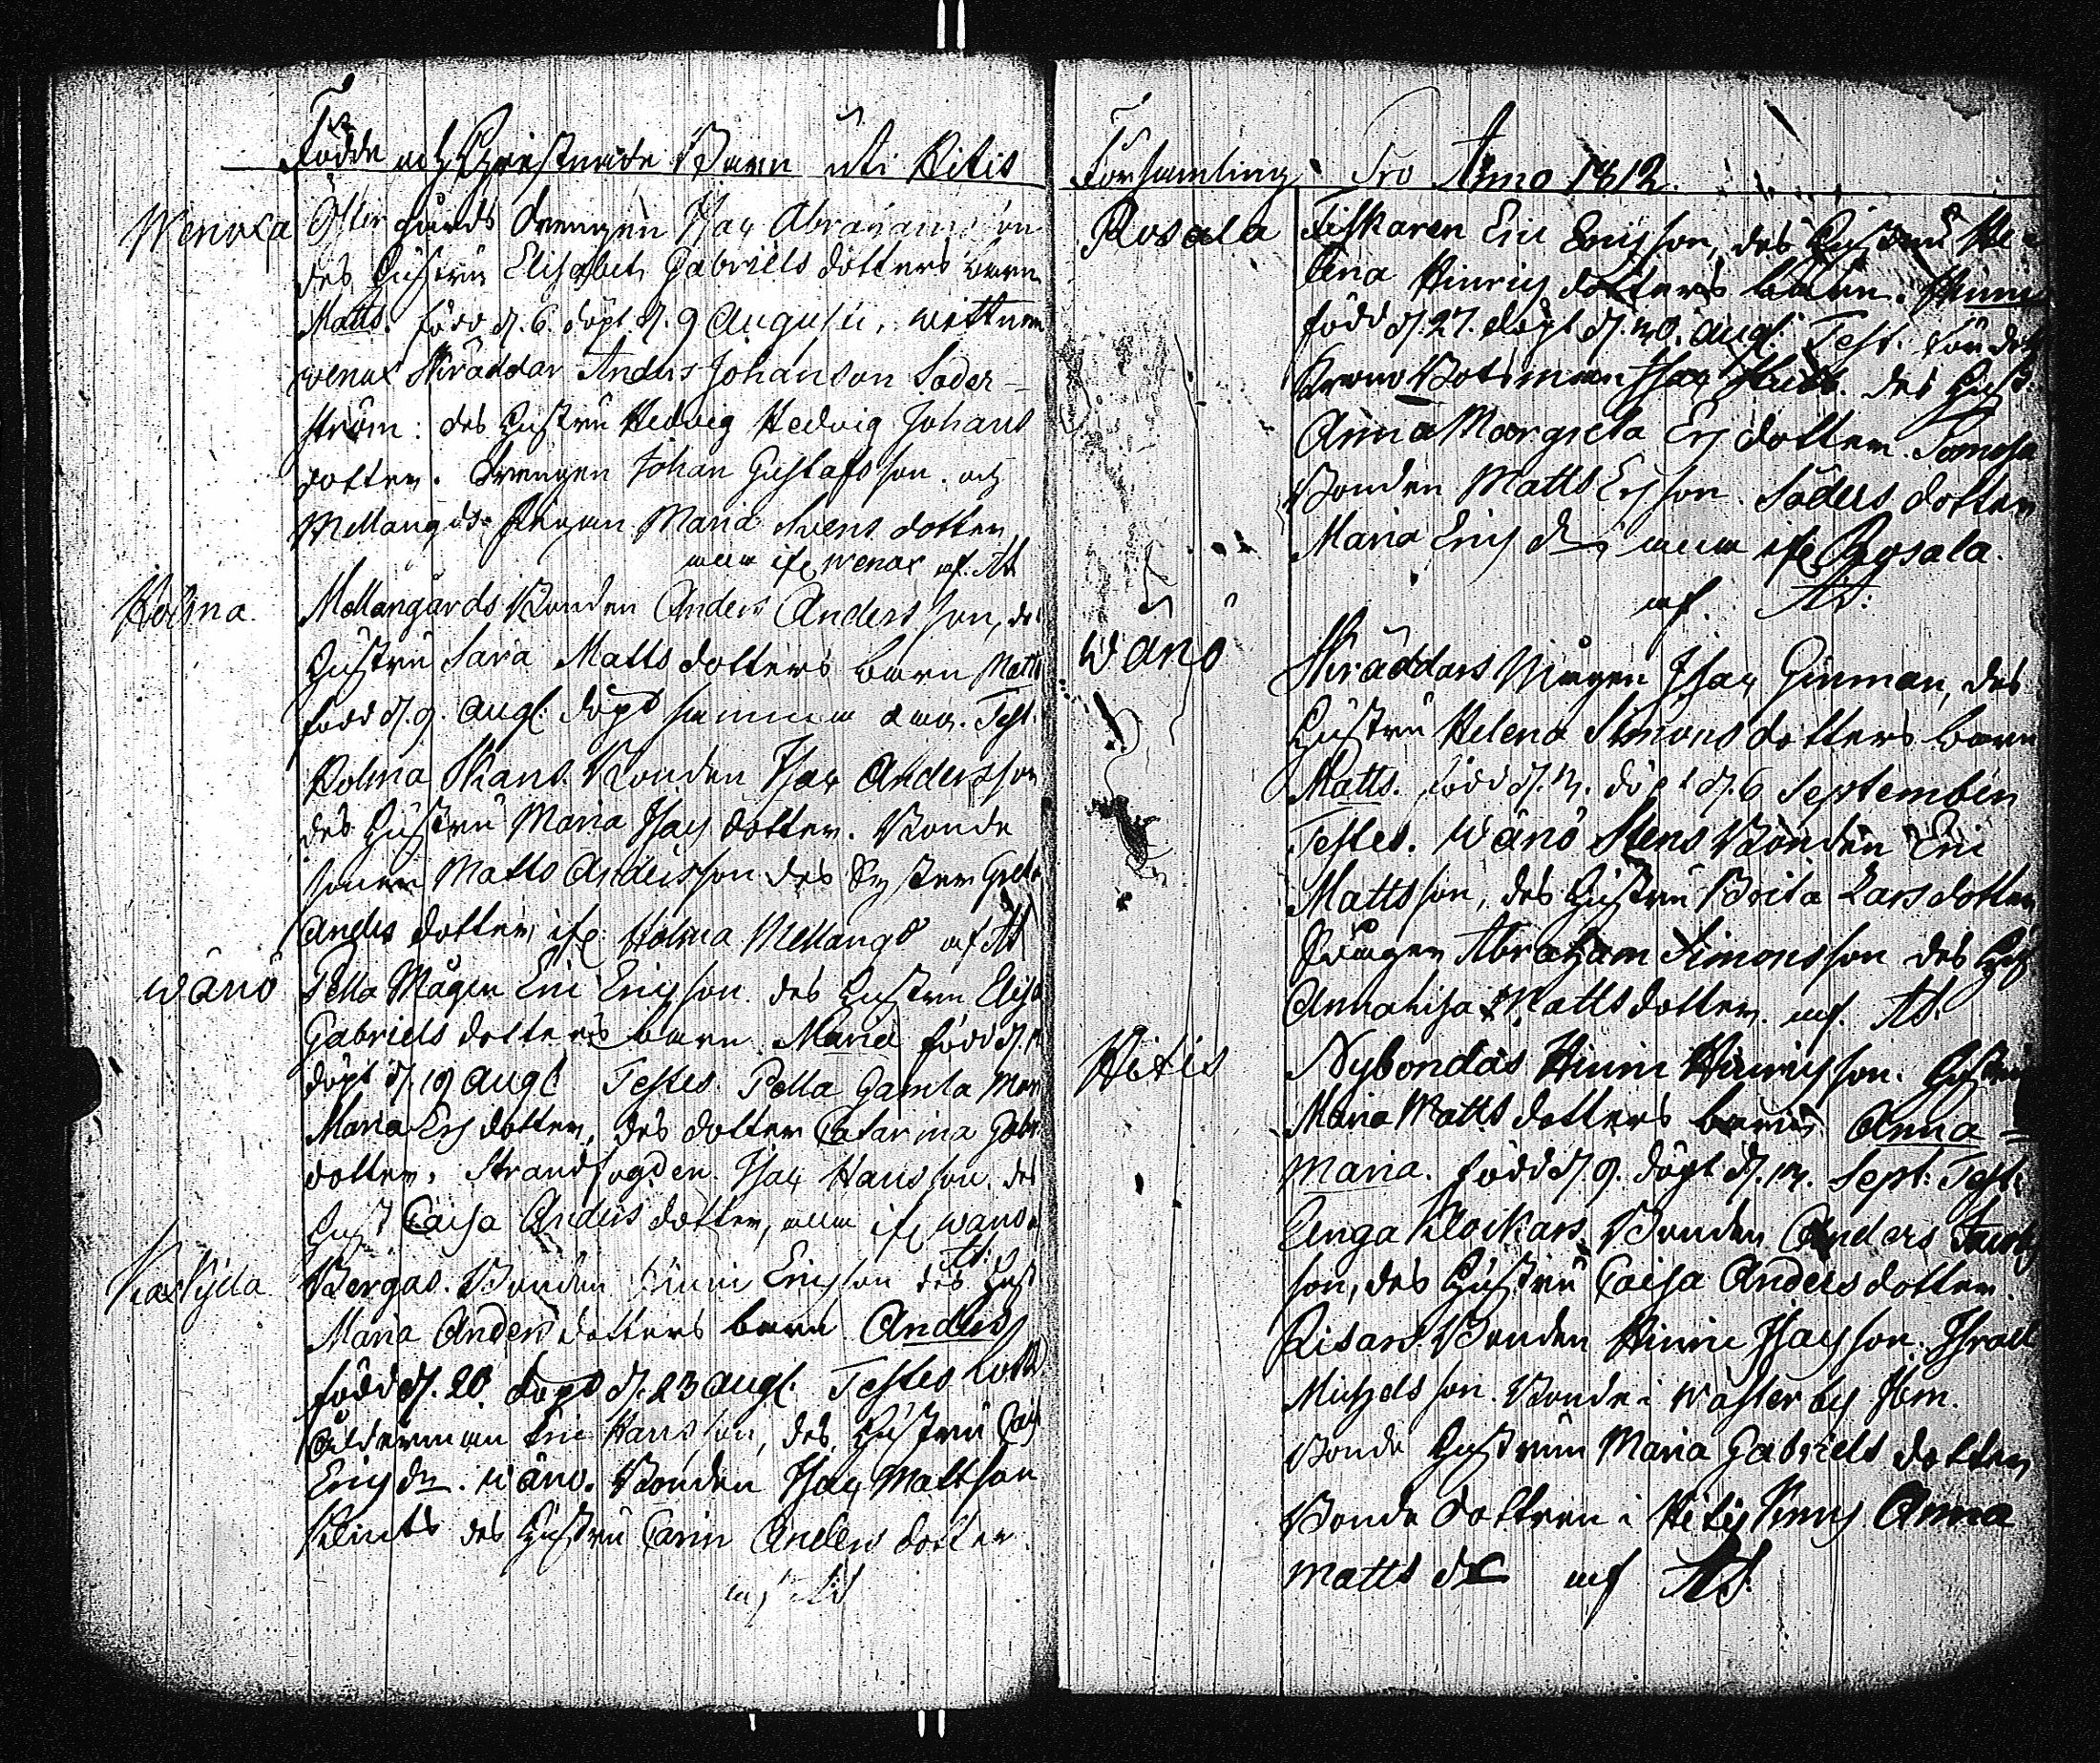 Födde och Christnade Barn uti Hitis
Wenoxa Östergårds Drengen Isac Abrahamsson
des Hustru Elisabet Gabriels dotters barn
Matts. född d. 6. döpt d. 9 Augusti. wittnen
wenox Skräddar Anders Johanson Söder-
ström: des Hustru Hedvig Hedvig Johans
dotter. Drengen Johan Gustafsson. och
Mellangds Pigan Maria Svens dotter
ifr wenox af. AS
Holma. Mellangårds Bonden Anders Andersson, des
Hustru Sara Matts dotters barn Matts
född d. 9. Augl. döpt samma dag. Test.
Holma Skans Bonden Isac Andersson
des Hustru Maria Isacs dotter. Bonde
sonen Matts Andersson des Syster Greta
Anders dotter, ifr Holma Mellangd af AS
wänö Pella Mågen Eric Ericsson. des Hustru Elisa
Gabriels dotters barn Maria född d.
döpt d. 19 Augl Testes. Pella Gamla Mor
Maria Ers dotter, des dotter Catarina Gabr.
dotter. Strandfogden Isac Hansson. des
Hust Caisa Anders dotter, ifr wänö
AS
Bergas. Bonden Hinric Ericsson des Hust
Maria Anders dotters barn Anders
född d. 20 döpt d. 23 Augl. Testes
Ålderman Eric Hansson, des Hustru Cais
Erics dr. wänö. Bonden Isac Mattsson
Klints des Hustru Carin Anders dotter.
af AS
Församling Pro Anno 1812.
Rosala Fiskaren Eric Ericsson, des Hustru He-
lena Hinrics dotters barn. Hinric
född d. 27. döpt d. 30. Augl. Test.
Botsman Isac des Hust.
Anna Margreta Ers dotter.
Bonden Matts Ersson. Söders dotter
Maria Erics dr ifr Rosala.
af. AS.
wänö Skräddars Mågen Isac Ginman, des
Hustru Helena Simons dotters barn
Matts. född d. döpt d. 6 September
Testes. wänö Stens Bonden Eric
Mattsson, des Hustru Brita Lars dotter
Abraham Simonsson des
Annalisa Matts dotter. af. AS.
Hitis Nybondas Hinric Hinricsson. Hustru
Maria Matts dotters barn Anna-
Maria. född d. 9. döpt d. 13. Sept: Test:
Unga Klockars. Bonden Anders
son, des Hustru Caisa Anders dotter.
Bonden Hinric Isacsson. Israel
Michels son. Bonde i Wästerby
Bonde Hustrun Maria Gabriels dotter
Bonde dottren i Hitis Anna
Matts dr af AS.